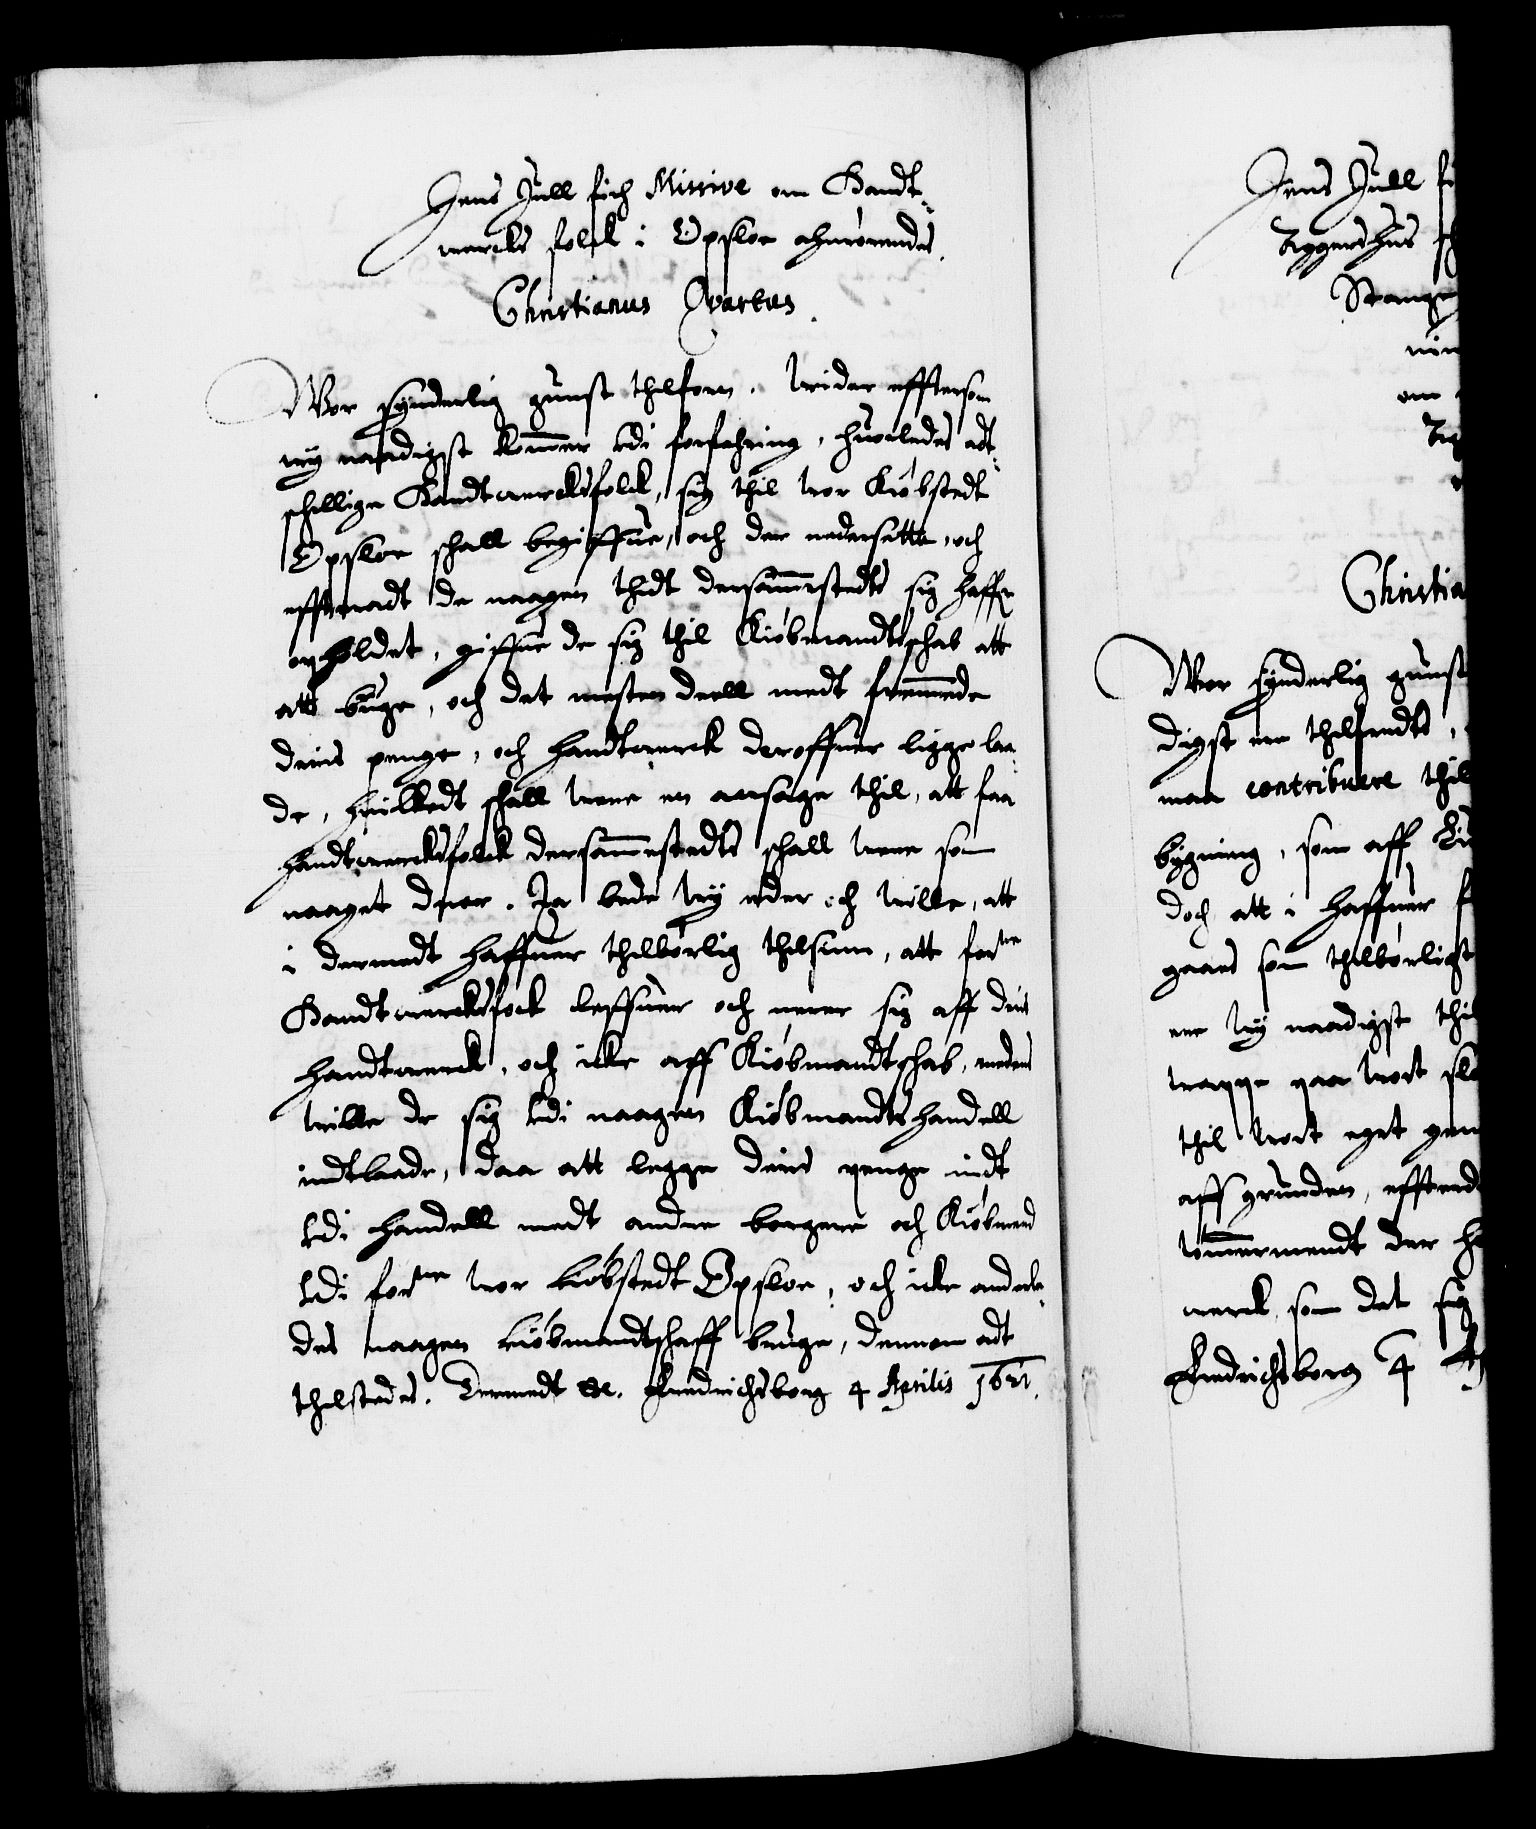 Jens Juell fich Missive om Handt-
wercks folck i Opsloe ahnrørendes.
Christianus Qvartus.
Wor synderlig gunst thilforn. Wider effterson
wy naadigst kommer udi forfahring, huorledes adt-
schellige Handtwercksfolck, sig thil wor Kiøbstedt
Opsloe schall begiffue, och der nedersette, och
effteradt de naagen thidt dersammestedts sig haffr
opholdet, giffue de sig thil Kiøbmandtschab att
att bruge, och det mesten deell medt fremmede
deris penge, och handtwerck deroffuer ligge laa-
de, huilkedt schall were en aarsage thil, att faa
handtwercksfolck dersammestedts schall were som
naaget duer. Ja bede wy eder och wille, att
i dermedt haffuer thilbørlig thilsiun, att forne
Handtwercksfock leffuer och nerer sig aff deris
handtwerck, och icke aff Kiøbmandtschab, medens
wille de sig udi naagen Kiøbmandtshandell
indtlaade, daa att legge deris penge indt
udi handell medt andre borgere och Kiøbmend
udi forne wor kiøbstedt Opsloe, och icke anderle-
des naagen kiøbmandtschaff bruge, dennom adt
thilstedes. Dermedt &c. Fredrichsborg 4 Aprilis 1621.
Jens Juell
Aggershus
Christia
Wor synderlig gunst
digst ere thilfredts,
maa contribuere thil
bygning, som aff
doch att i haffuer
som thilbørligst
ere wy naadigst thil
trappe paa wort
thil wort eget
aff grunden,
tømmermendt der
werck, som det sig
Fredrichsborg 4